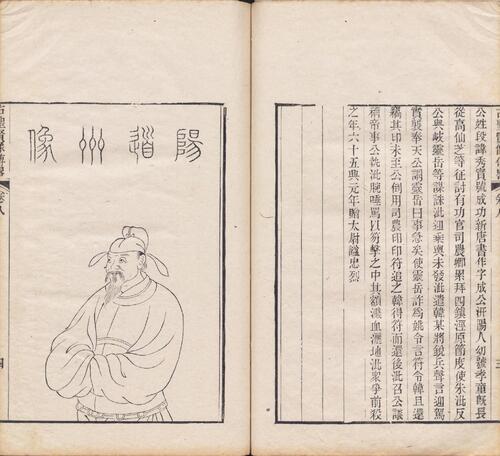 古聖賢像傳畧 卷八 三
公姓段諱秀實號成功新唐書作字成公汧陽人幼號孝童旣長
從高仙芝等征討有功官司農卿累拜四鎮涇原節度使朱泚反
公與岐靈岳等謀誅泚迎乘輿未發泚遣韓某將銳兵聲言迎駕
實襲奉天公謂靈岳曰事急矣使靈岳詐爲姚令言符令韓且還
竊其印未至公倒用司農印印符追之韓得符而還後泚召公議
稱帝事公執泚腕唾罵以笏擊之中其額濺血灑地泚衆爭前殺
之年六十五興元年贈太尉謚忠烈
陽道州像
古聖賢像傳畧 卷八 四